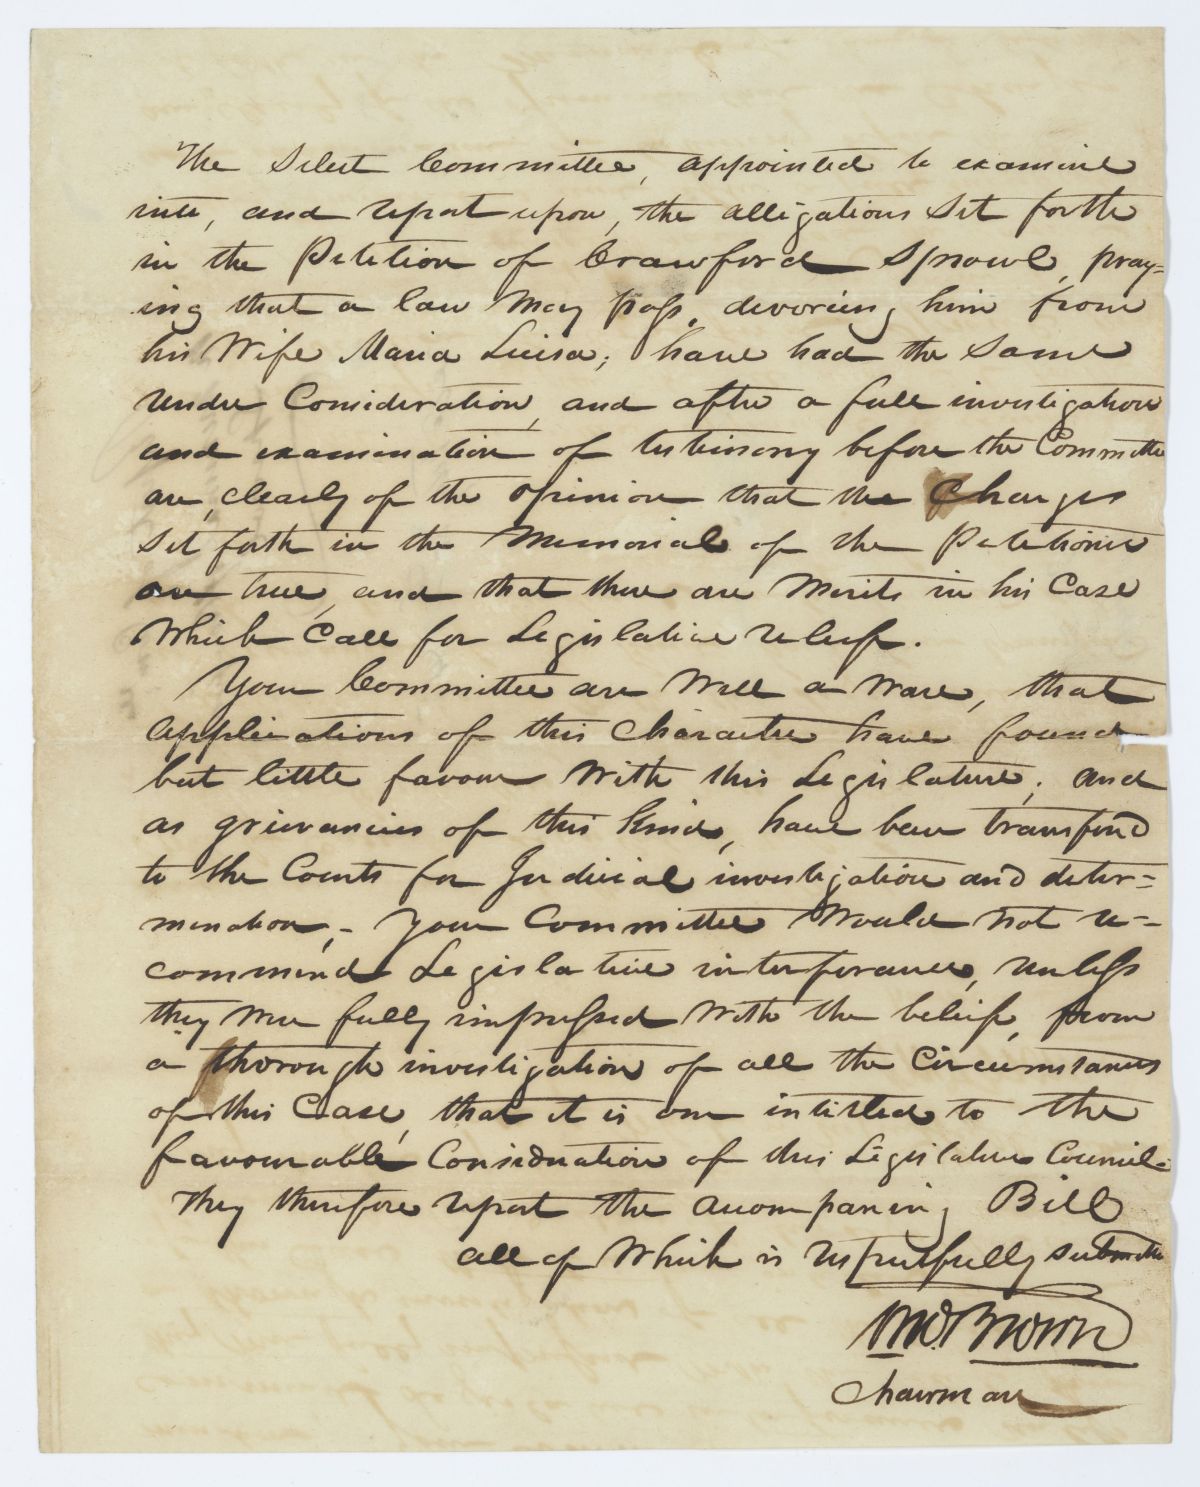 The Select Committee, appointed to examine
into, and report upon, the alligations set forth
in the Petition of Crawford Sprowl, pray=
ing that a law may pass, devorcing him from
his Wife Maria Luisa; have had the same
under Consideration, and after a full investigation
and examination of testimony before the Committee
are, clearly of the opinion that the Charges
set forth in the Memorial of the Petitioner
are true, and that there are Merits in his Case
Which Call for Legislative relief.
Your Committee are Well a Ware, that
applications of this Character have found
but little favour With this Legislature; and
as grievancies of this Kind, have been transferd
to the Courts for Judicial investigation and deter=
mination, - Your Committee Would not re=
commend Legislative interferance, unless
they were fully impressed With the belief, from
a thorough investigation of all the Circumstances
of this Case, that it is one intitled to the
favourable Consideration of this Legislative Council-
They therefore report the accompaning Bill
all of Which is respectfully submitte
Tho. Brown
Chairman